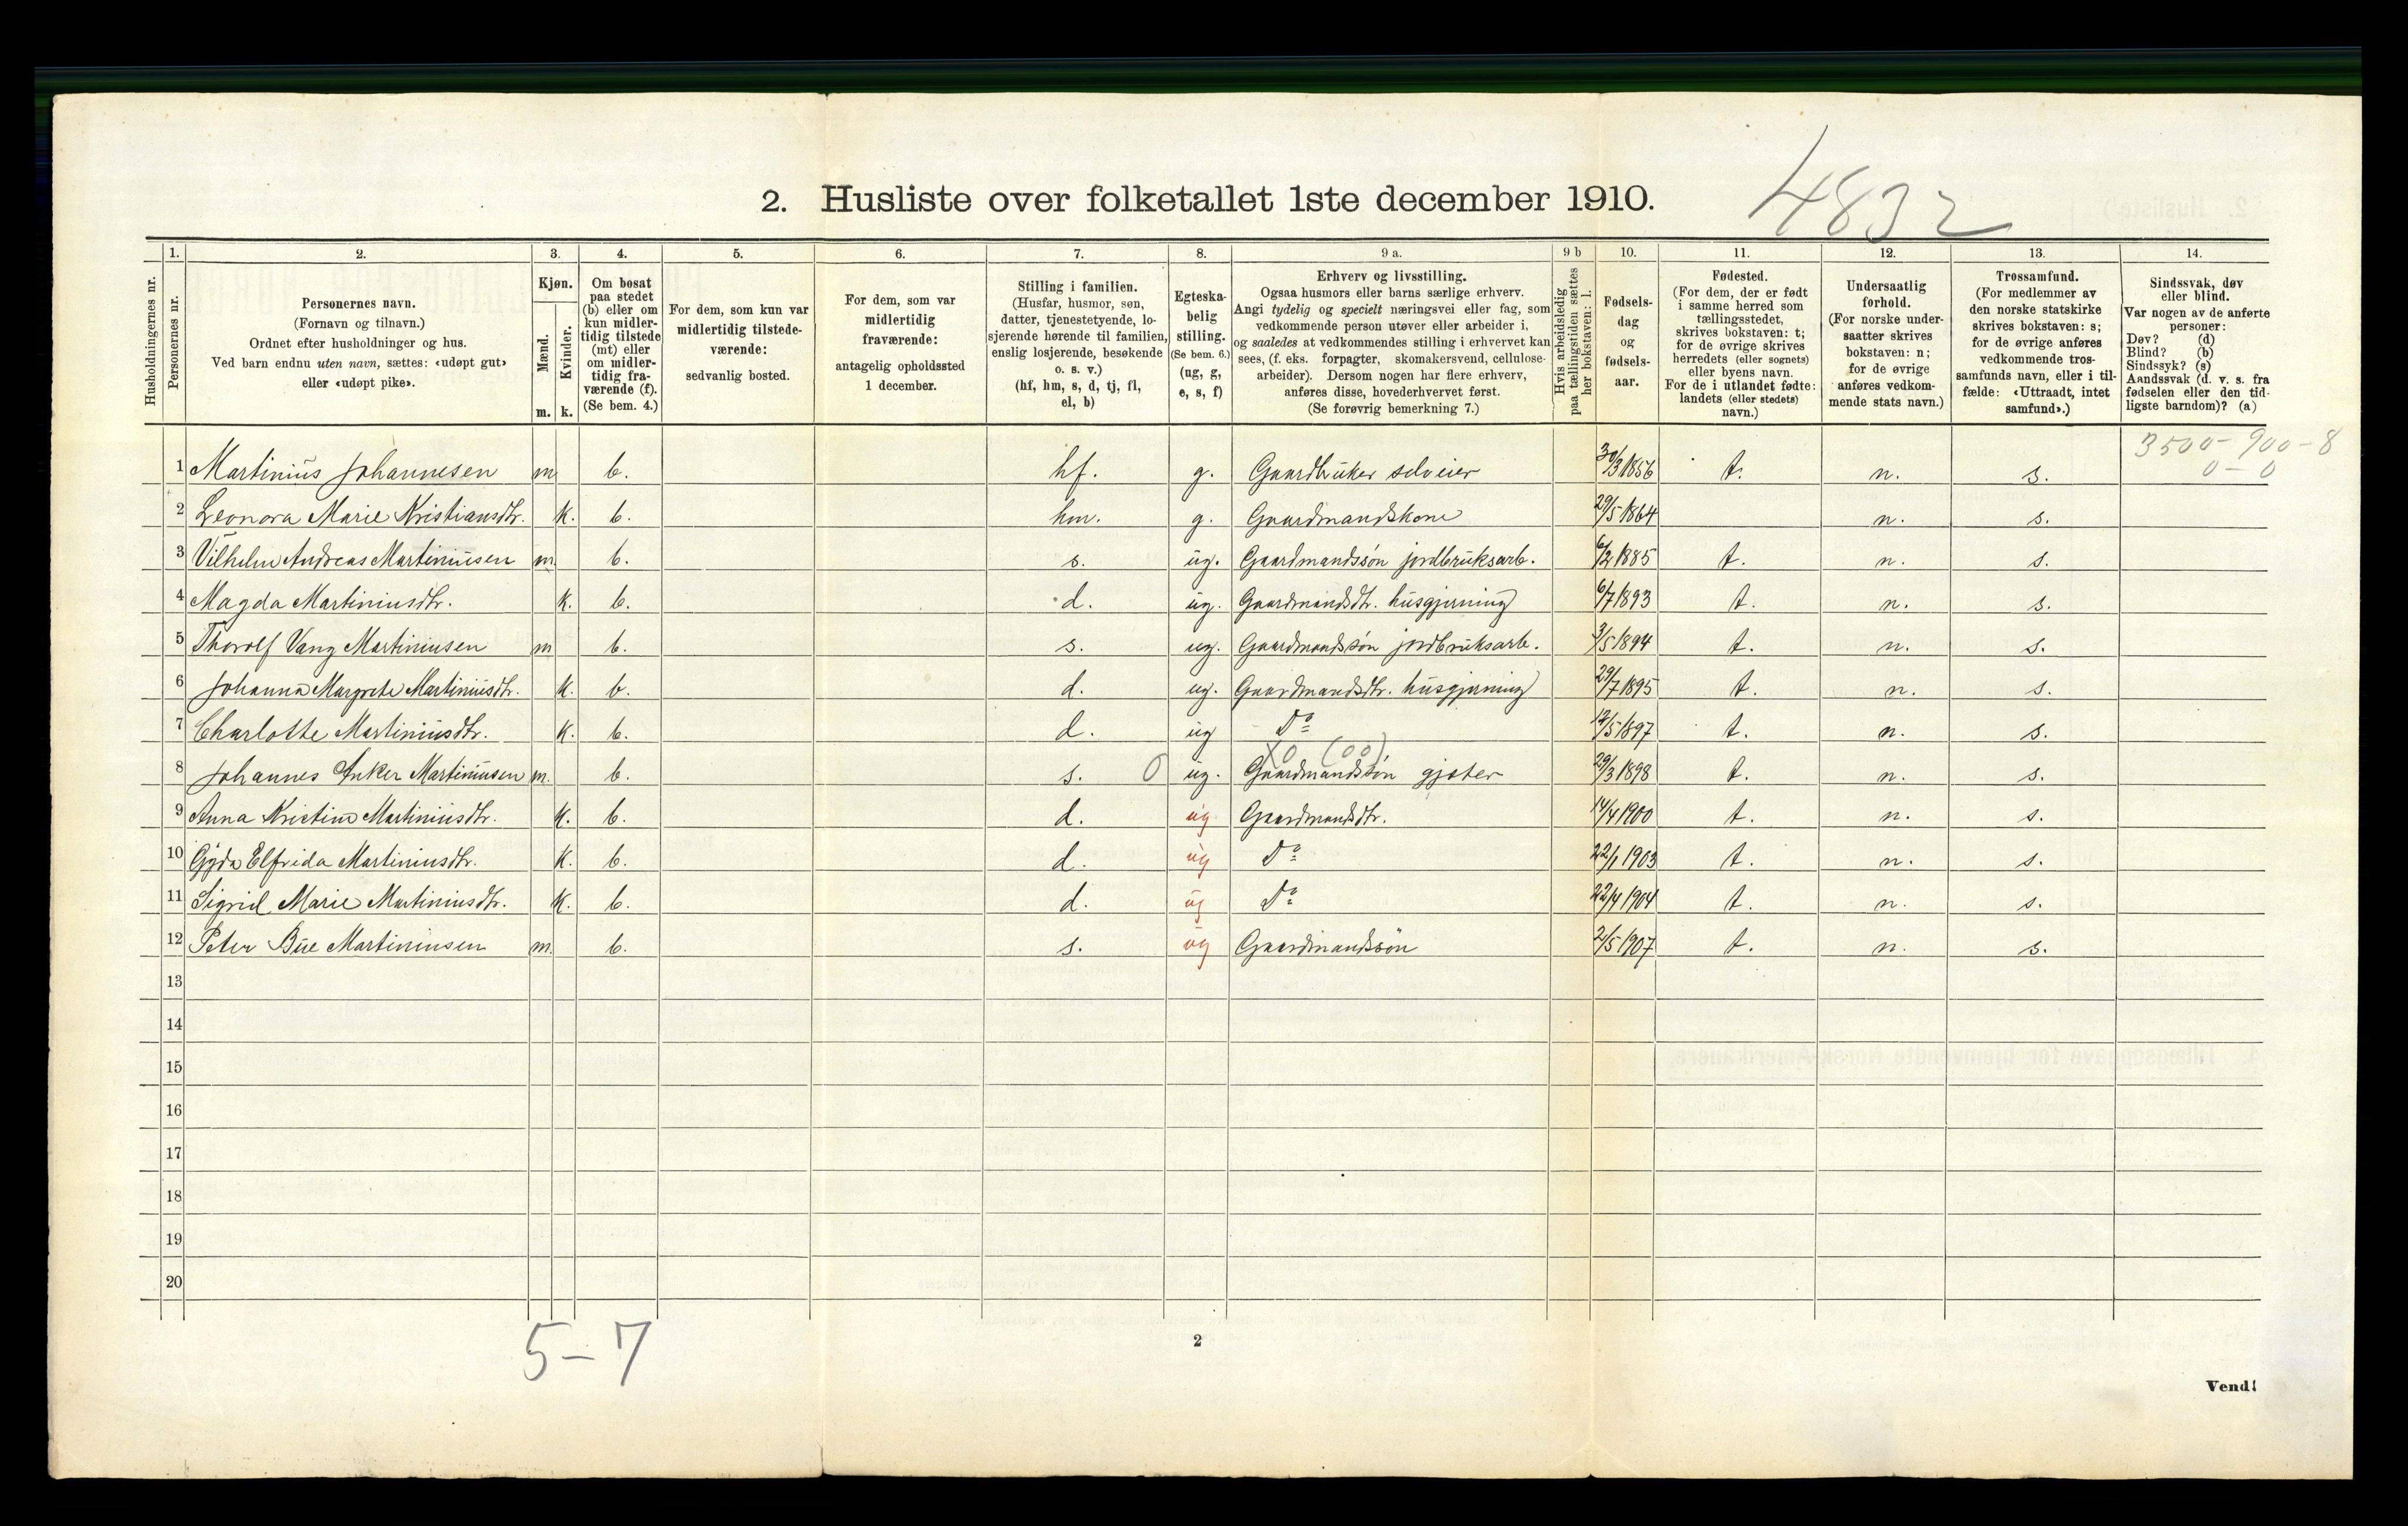 2. Husliste over folketallet 1ste december 1910.
4832
Husholdningernes nr.
1.
Personernes nr.
2.
Personernes navn.
(Fornavn og tilnavn.)
Ordnet efter husholdninger og hus.
Ved barn endnu uten navn, sættes: «udøpt gut»
eller «udøpt pike».
3.
Kjøn.
Mænd.
Kvinder.
m. k.
4.
Om bosat
paa stedet
(b) eller om
kun midler-
tidig tilstede
(mt) eller
om midler-
tidig fra-
værende (f).
(Se bem. 4.)
5.
For dem, som kun var
midlertidig tilstede-
værende:
sedvanlig bosted.
6.
For dem, som var
midlertidig
fraværende:
antagelig opholdssted
1 december.
7.
Stilling i familien.
(Husfar, husmor, søn,
datter, tjenestetyende, lo-
sjerende hørende til familien,
enslig losjerende, besøkende
o. s. v.)
(hf, hm, s, d, tj, fl,
el, b)
8.
Egteska-
belig
stilling.
(Se bem. 6.)
(ug, g,
e, s, f)
9 a.
Erhverv og livsstilling.
Ogsaa husmors eller barns særlige erhverv.
Angi tydelig og specielt næringsvei eller fag, som
vedkommende person utøver eller arbeider i,
og saaledes at vedkommendes stilling i erhvervet kan
sees, (f. eks. forpagter, skomakersvend, cellulose-
arbeider). Dersom nogen har flere erhverv,
anføres disse, hovederhvervet først.
(Se forøvrig bemerkning 7.)
9 b
Hvis arbeidsledig
paa tællingstiden sættes
her bokstaven: l.
10.
Fødsels-
dag
og
fødsels-
aar.
11.
Fødested.
(For dem, der er født
i samme herred som
tællingsstedet,
skrives bokstaven: t;
for de øvrige skrives
herredets (eller sognets)
eller byens navn.
For de i utlandet fødte:
landets (eller stedets)
navn.)
12.
Undersaatlig
forhold.
(For norske under-
saatter skrives
bokstaven: n;
for de øvrige
anføres vedkom-
mende stats navn.)
13.
Trossamfund.
(For medlemmer av
den norske statskirke
skrives bokstaven: s;
for de øvrige anføres
vedkommende tros-
samfunds navn, eller i til-
fælde: «Uttraadt, intet
samfund».)
14.
Sindssvak, døv
eller blind.
Var nogen av de anførte
personer:
Døv? (d)
Blind? (b)
Sindssyk? (s)
Aandssvak (d. v. s. fra
fødselen eller den tid-
ligste barndom)? (a)
3500 - 900 - 8
0 - 0
1 Martinius Johannesen m b. hf. g. Gaardbruker selveier 30/3 1856 t. n. s.
2 Leonora Marie Kristiansdtr. k. b. hm. g. Gaardmandskone 29/5 1864 n. s.
3 Vilhelm Andreas Martiniusen m b. s. ug. Gaardmandssøn jordbruksarb. 6/2 1885 t. n. s.
4 Magda Martiniusdtr. k. b. d. ug. Gaardmandsdtr. husgjerning 6/7 1893 t. n. s.
5 Thorolf Vang Martiniusen m b. s. ug. Gaardmandssøn jordbruksarb. 3/5 1894 t. n. s.
6 Johanna Margrete Martiniusdtr. k. b. d. ug. Gaardmandsdtr. husgjerning 29/7 1895 t. n. s.
7 Charlotte Martiniusdtr. k. b. d. ug Do 12/5 1897 t. n. s.
X0 (00)
8 Johannes Anker Martiniusen m. b. s. 0 ug. Gaardmandssøn gjæter 29/3 1898 t. n. s.
9 Anna Kristine Martiniusdtr. k. b. d. ug Gaardmandsdtr. 14/4 1900 t. n. s.
10 Gyda Elfrida Martiniusdtr. k. b. d. ug Do 22/1 1903 t. n. s.
11 Sigrid Marie Martiniusdtr. k. b. d. ug Do 22/4 1904 t. n. s.
12 Peter Bue Martiniusen m. b. s. ug Gaardmandssøn 2/5 1907 t. n. s.
13
14
15
16
17
18
19
20
5 - 7
2
Vend!